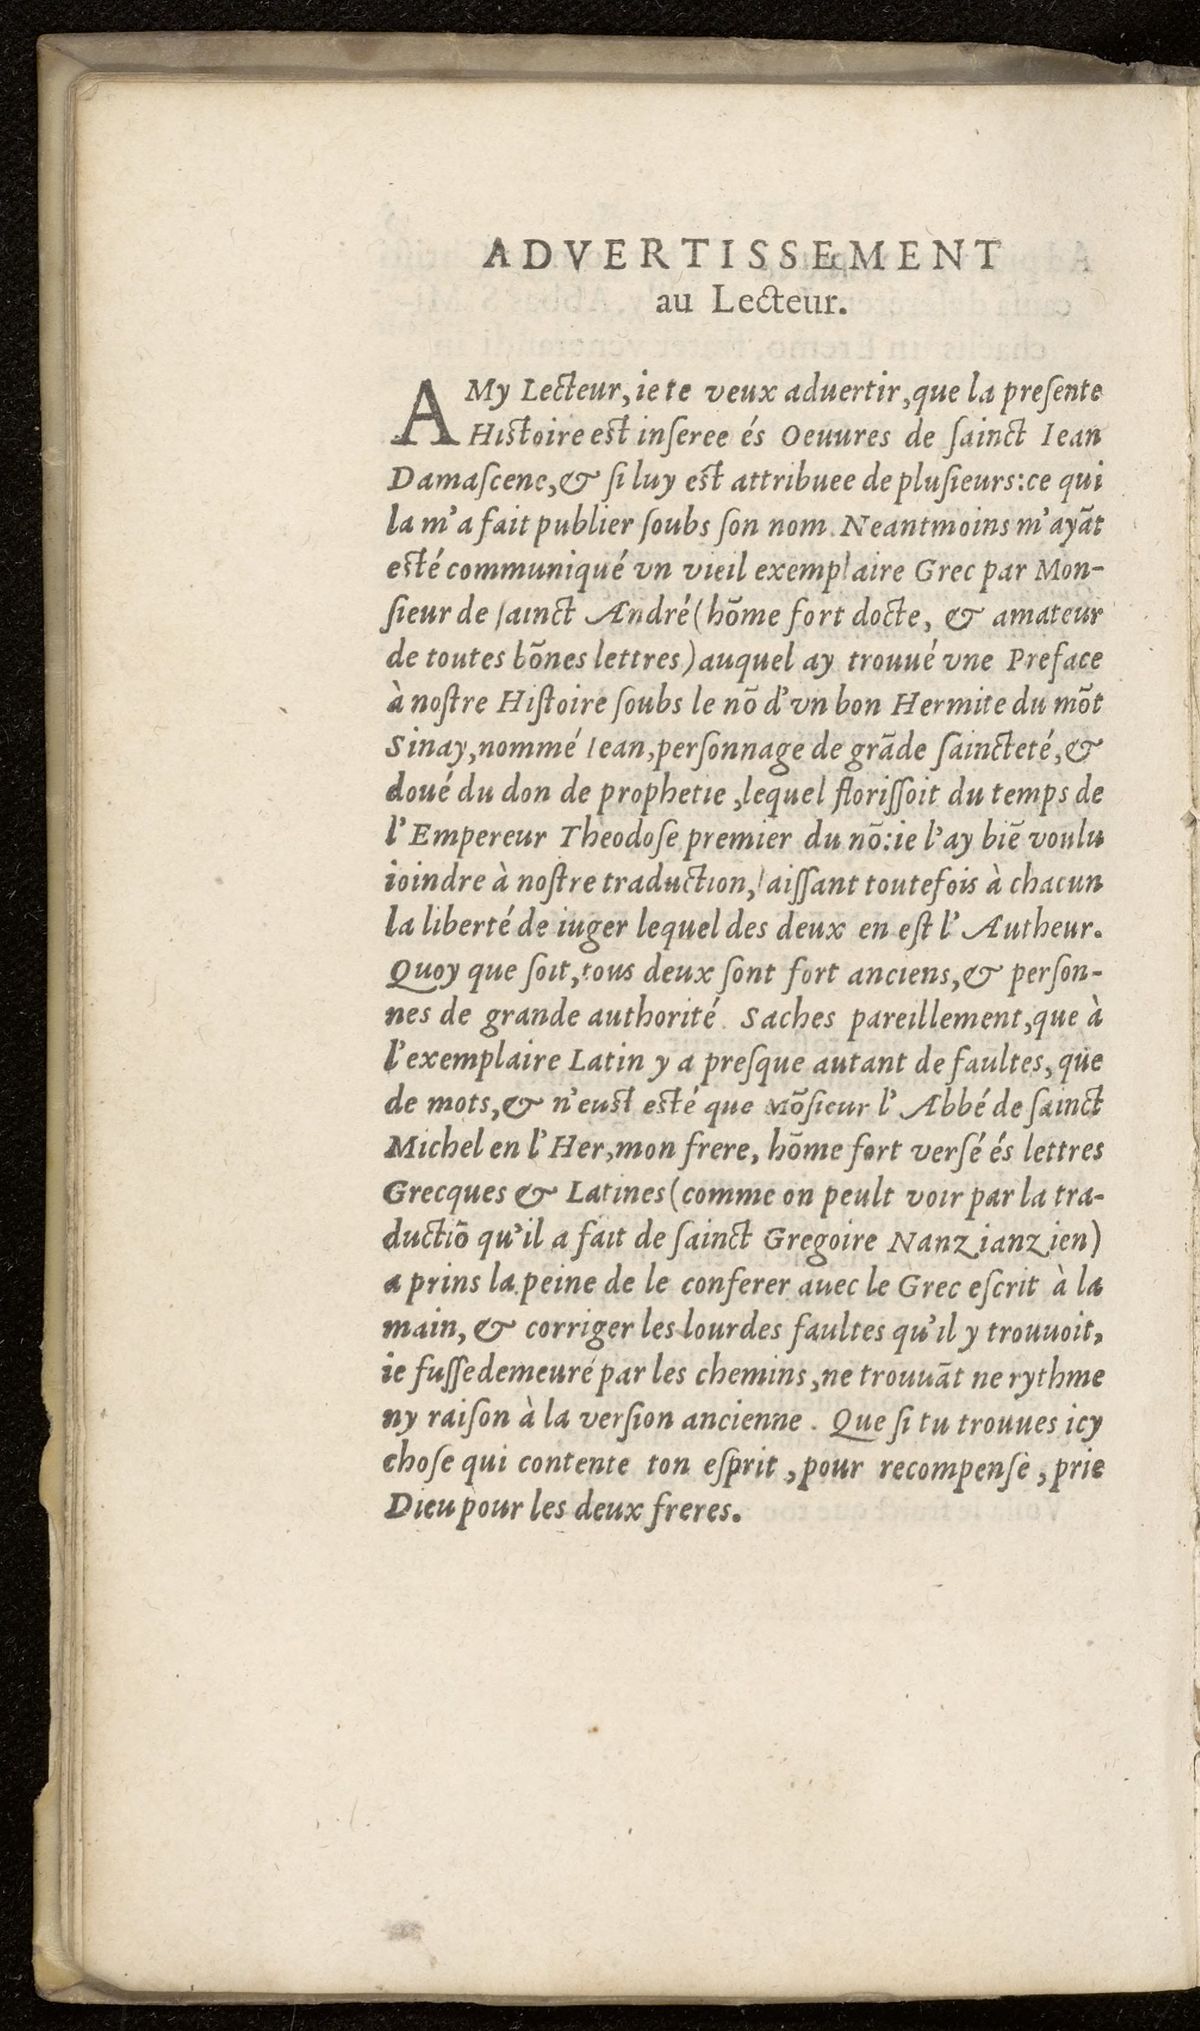 ADVERTISSEMENT
au Lecteur.
AMy Lecteur, ie te veux aduertir, que la preſente
Histoire est inſeree és Oeuures de ſainct Iean
Damaſcene, & ſi luy est attribuee de pluſieurs: ce qui
la m'a fait publier ſoubs ſon nom. Neantmoins m'ayãt
esté communiqué vn vieil exemplaire Grec par Mon-
ſieur de ſainct André (hõme fort docte, & amateur
de toutes bõnes lettres) auquel ay trouué vne Preface
à noſtre Hiſtoire ſoubs le nõ d'vn bon Hermite du mõt
Sinay, nommé Iean, perſonnage de grãde ſaincteté, &
doué du don de prophetie, lequel floriſſoit du temps de
l'Empereur Theodoſe premier du nõ: ie l'ay biẽ voulu
ioindre à noſtre traduction, laiſſant toutefois à chacun
la liberté de iuger lequel des deux en eſt l'Autheur.
Quoy que ſoit, tous deux ſont fort anciens, & perſon-
nes de grande authorité. Saches pareillement, que à
l'exemplaire Latin y a preſque autant de faultes, que
de mots, & n'eust esté que Mõſieur l'Abbé de ſainct
Michel en l'Her, mon frere, hõme fort verſé és lettres
Grecques & Latines (comme on peult voir par la tra-
ductiõ qu'il a fait de ſainct Gregoire Nanzianzien)
a prins la peine de le conferer auec le Grec eſcrit à la
main, & corriger les lourdes faultes qu'il y trouuoit,
ie fuſſe demeuré par les chemins, ne trouuãt ne rythme
ny raiſon à la verſion ancienne. Que ſi tu trouues icy
choſe qui contente ton eſprit, pour recompenſe, prie
Dieu pour les deux freres.